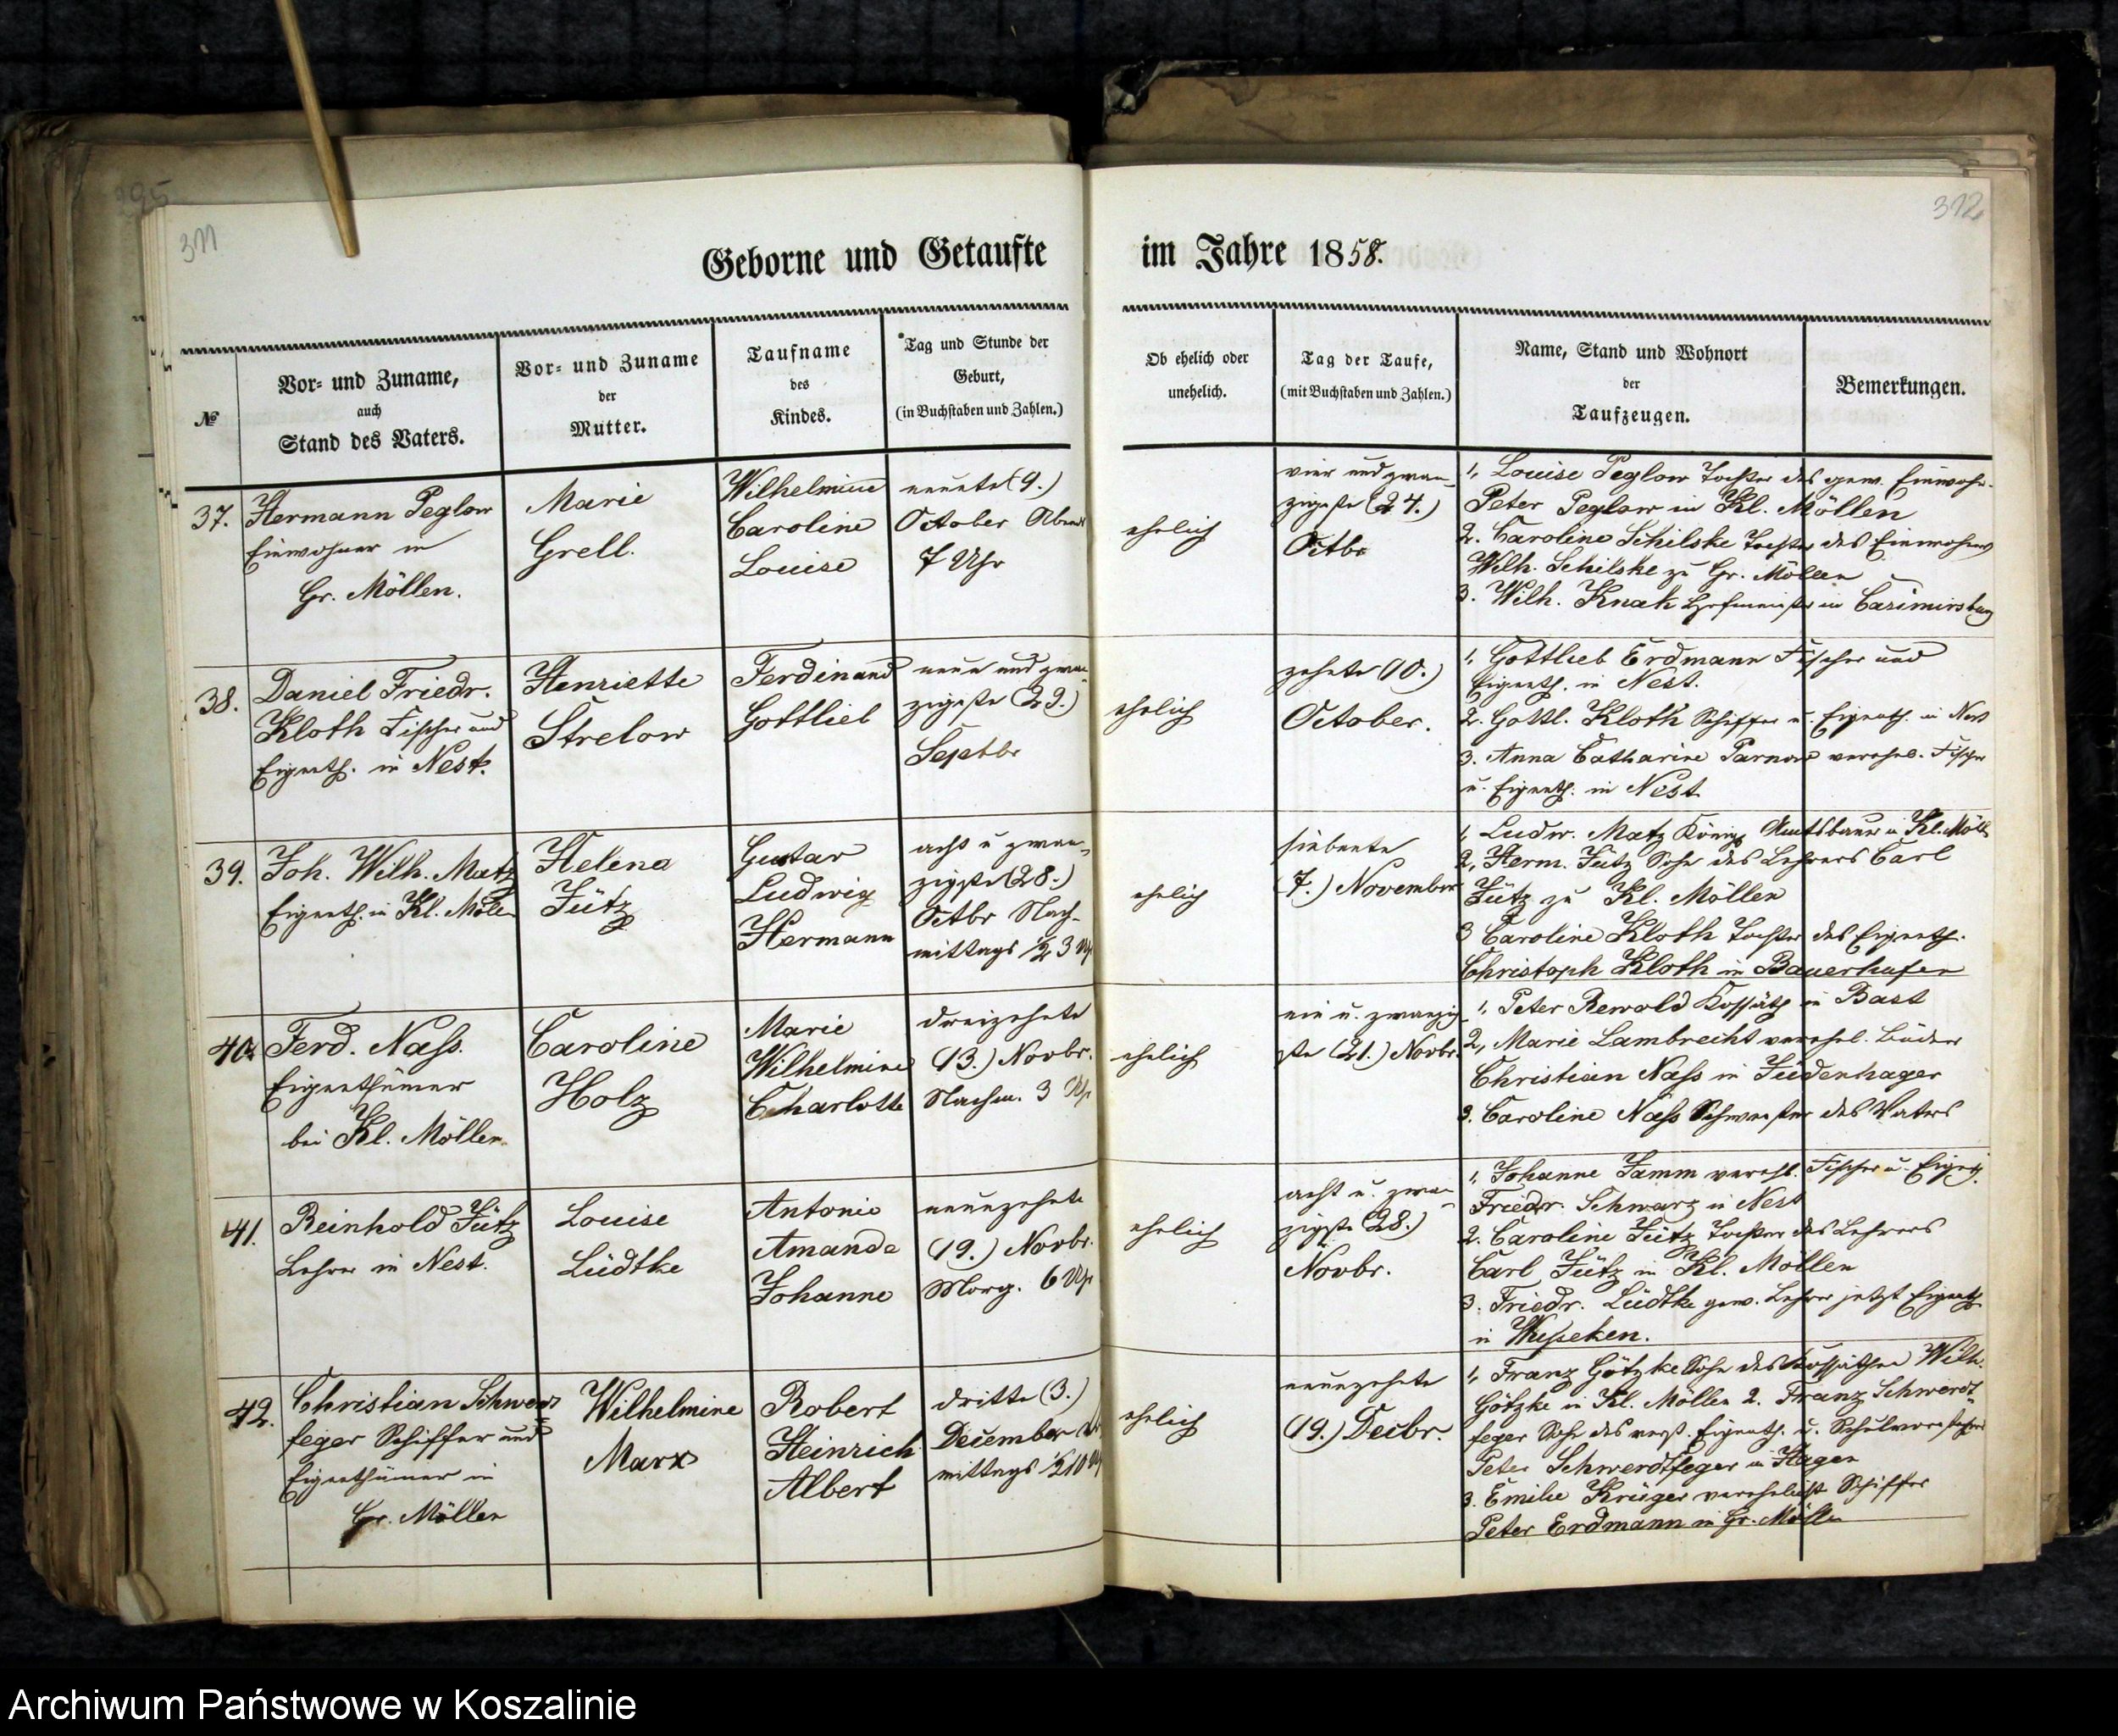 295
311
312
Geborne und Getaufte im Jahre 1858.
№
Vor- und Zuname,
auch
Stand des Vaters.
Vor- und Zuname
der
Mutter.
Taufname
des
Kindes.
Tag und Stunde der
Geburt,
(in Buchstaben und Zahlen.)
Ob ehelich oder
unehelich.
Tag der Taufe,
(mit Buchstaben und Zahlen.)
Name, Stand und Wohnort
der
Taufzeugen.
Bemerkungen.
37.
Hermann Peglow
Einwohner in
Gr. Möllen.
Marie
Grell.
Wilhelmine
Caroline
Louise
neunte (9.)
October Abends
7 Uhr
ehelich
vier und zwan-
zigste (24.)
Octbr
1, Louise Peglow Tochter des gew. Einwohn.
Peter Peglow in Kl. Möllen
2. Caroline Schilske Tochter des Einwohners
Wilh. Schilske zu Gr. Möllen
3. Wilh. Knak Hofmeister in Casimirsburg
38.
Daniel Friedr.
Kloth Fischer und
Eigenth. in Nest.
Henriette
Strelow
Ferdinand
Gottlieb
neun und zwan-
zigste (29.)
Septbr
ehelich
zehnte (10.)
October.
1, Gottlieb Erdmann Fischer und
Eigenth. in Nest.
2. Gottl. Kloth Schiffer u. Eigenth. in Nest
3. Anna Catharine Parnow verehel. Fischer
u. Eigenth. in Nest
39.
Joh. Wilh. Matz
Eigenth. in Kl. Möllen
Helena
Jütz
Gustav
Ludwig
Hermann
acht u zwan-
zigste (28.)
Octbr Nach-
mittags 1/2 3 Uhr
ehelich
siebente
(7.) November
1, Ludw. Matz Königl Amtsbauer in Kl. Möll
2, Herm. Jütz Sohn des Lehrers Carl
Jütz zu Kl. Möllen
3 Caroline Kloth Tochter des Eigenth.
Christoph Kloth in Bauerhufen
40.
Ferd. Nass.
Eigenthümer
bei Kl. Möllen
Caroline
Holz
Marie
Wilhelmine
Charlotte
dreizehnte
(13.) Novbr.
Nachm. 3 Uhr
ehelich
ein u. zwanzig-
ste (21.) Novbr.
1, Peter Rewold Kossäth in Bast
2, Marie Lambrecht verehel. Büdner
Christian Nass in Jüdenhagen
3. Caroline Nass Schwester des Vaters
41.
Reinhold Jütz
Lehrer in Nest.
Louise
Lüdtke
Antonie
Amanda
Johanne
neunzehnte
(19.) Novbr.
Morg. 6 Uhr
ehelich
acht u. zwan-
zigste (28.)
Novbr.
1, Johanne Jamm verehl. Fischer u. Eigenth.
Friedr. Schwarz in Nest
2. Caroline Jütz Tochter des Lehrers
Carl Jütz in Kl. Möllen
3. Friedr. Lüdtke gew. Lehrer jetzt Eigenth
in Wusseken.
42.
Christian Schwerdt-
feger Schiffer und
Eigenthümer in
Gr. Möllen
Wilhelmine
Marx
Robert
Heinrich
Albert
dritte (3.)
December
mittags 1/2 10 Uhr
ehelich
neunzehnte
(19.) Decbr.
1, Franz Götzke Sohn des Kossäthen Wilh.
Götzke in Kl. Möllen 2. Franz Schwerdt-
feger Sohn des verst. Eigenth. u. Schulvorstehers
Peter Schwerdtfeger in Hagen
3. Emilie Krüger verehelicht Schiffer
Peter Erdmann in Gr. Möllen
Archiwum Państwowe w Koszalinie